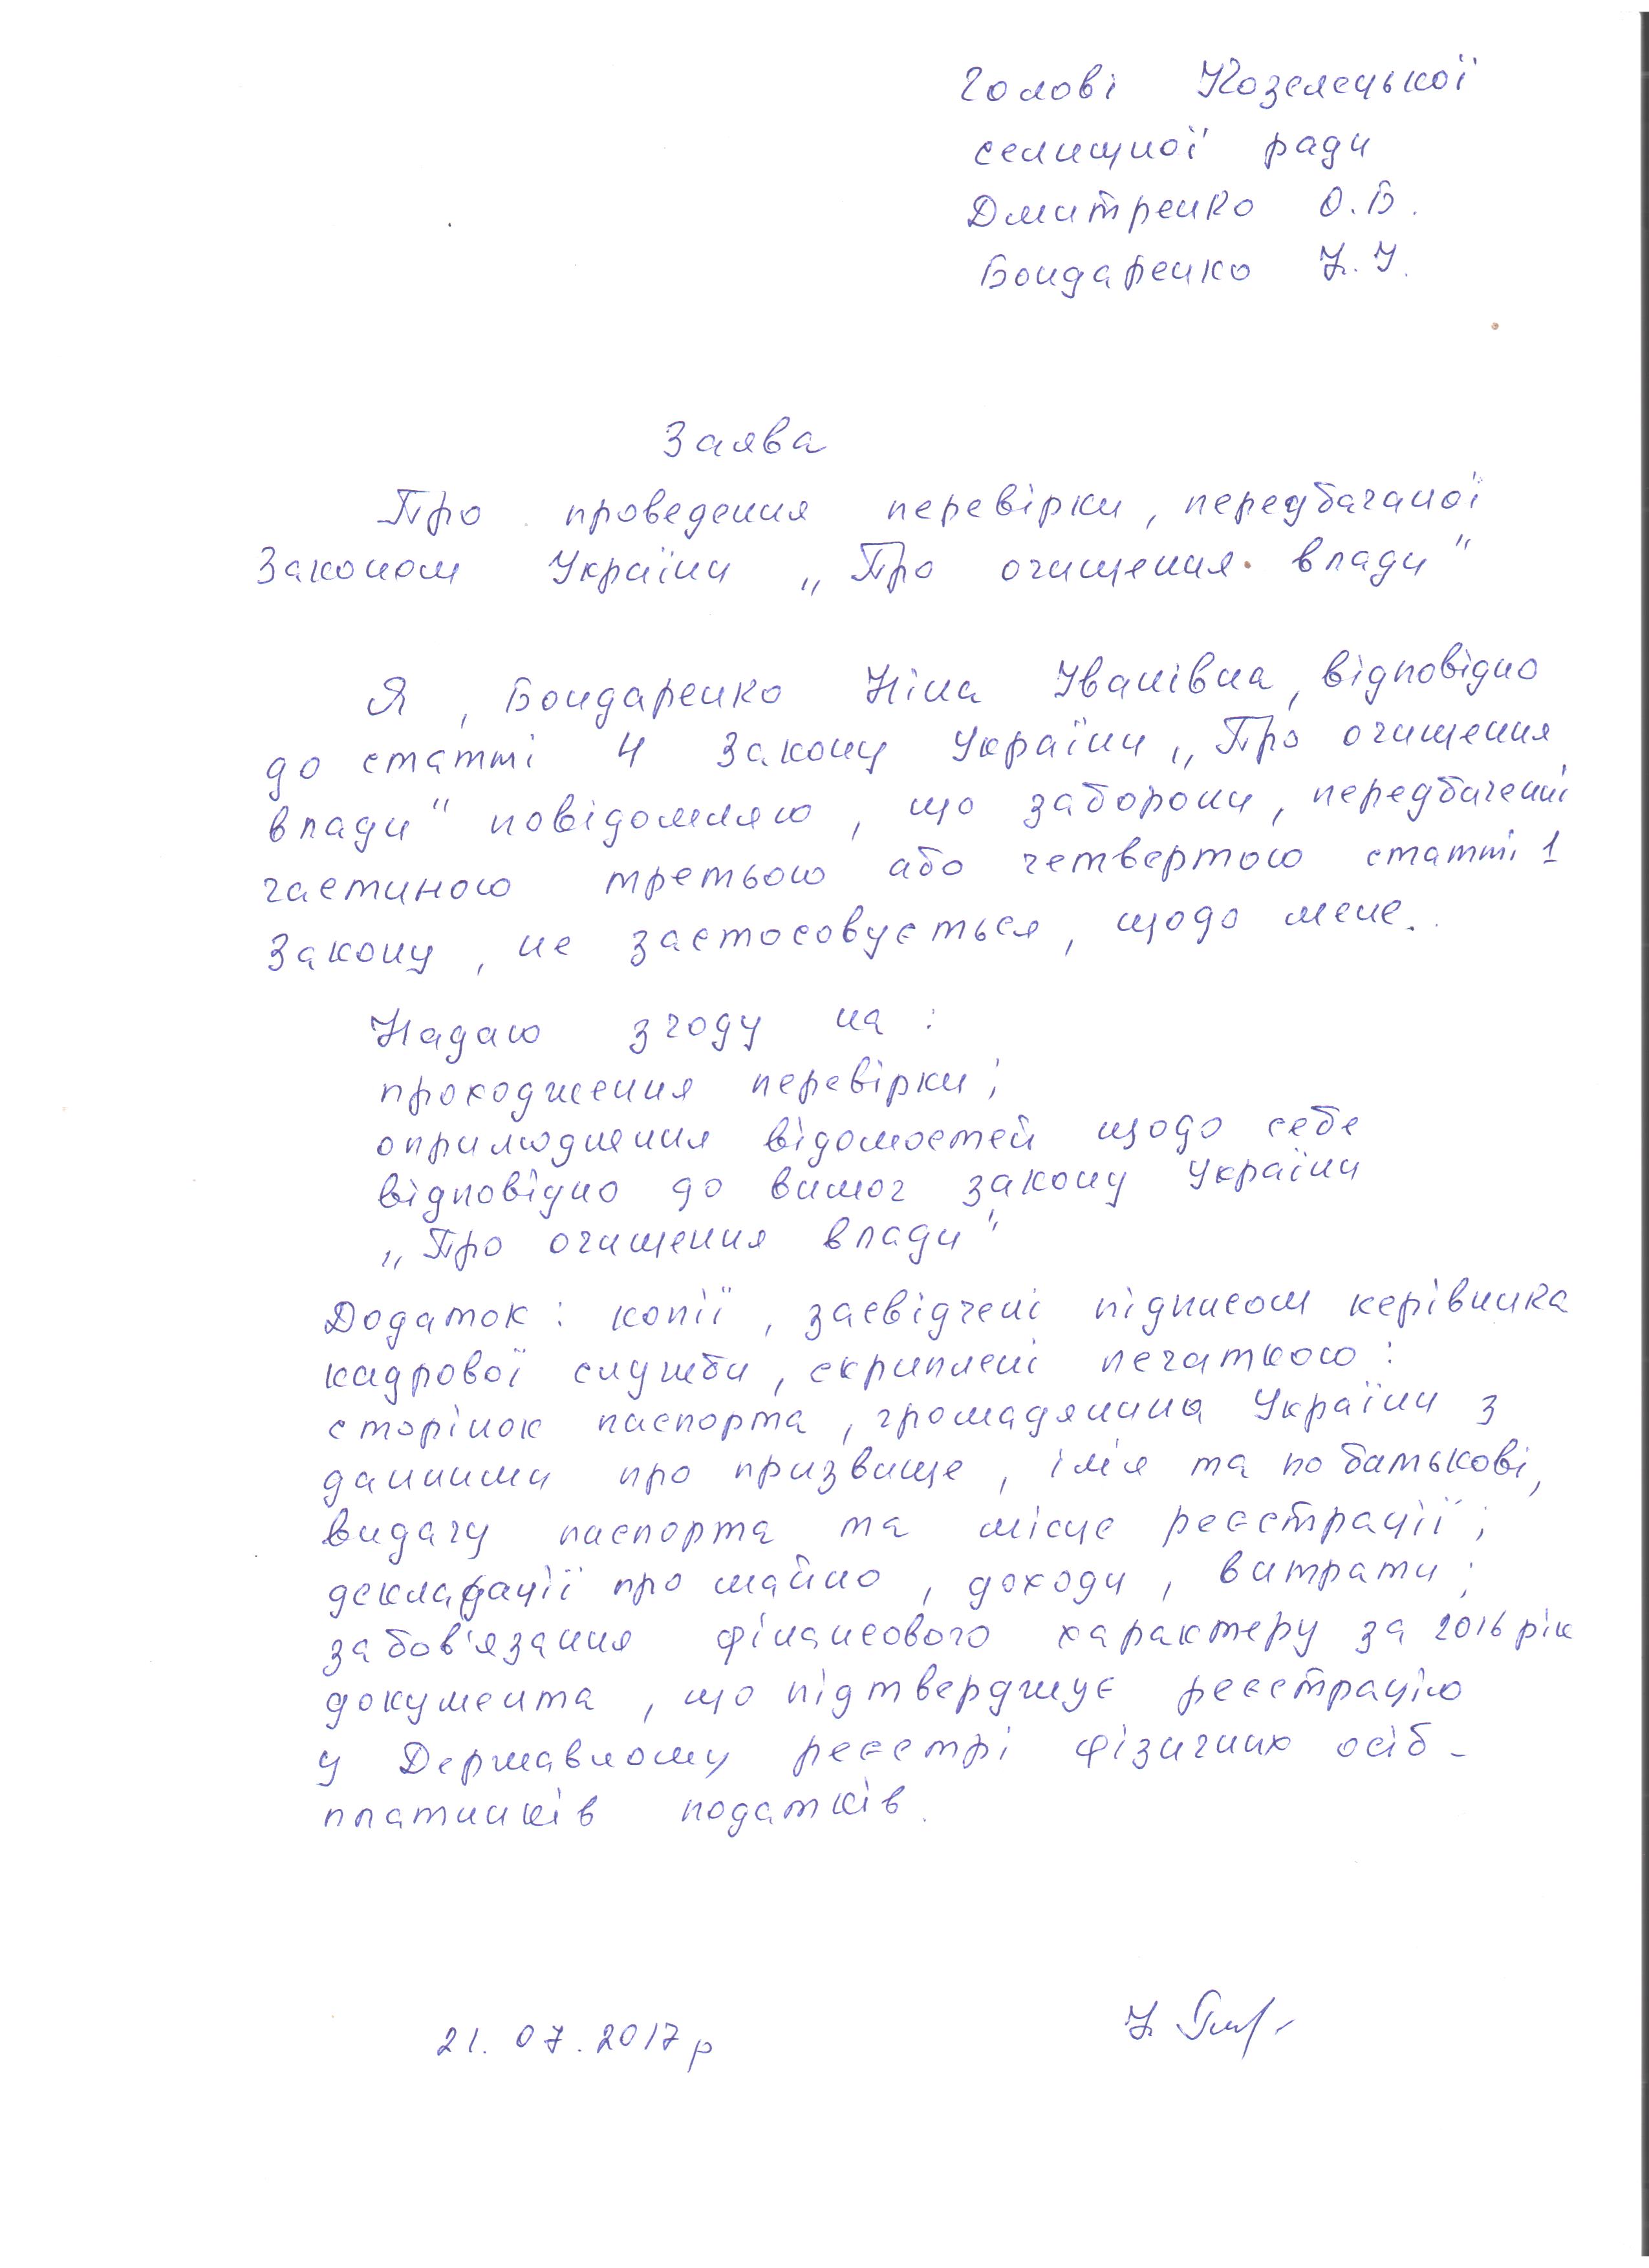 Голові Козелецької
селищної ради
Дмитренко О.Б.
Бондаренко Н.І.
Заява
Про проведення перевірки, передбачаної
Законом України „Про очищення влади"
Я, Бондаренко Ніна Іванівна, відповідно
до статті 4 Закону України „Про очищення
влади" повідомляю, що заборони, передбаченні
частиною третьою або четвертою статті 1
Закону, не застосовується, щодо мене.
Надаю згоду на:
проходження перевірки;
оприлюднення відомостей щодо себе
відповідно до вимог закону України
„Про очищення влади"
Додаток: копії, засвідчені підписом керівника
кадрової служби, скриплені печаткою:
сторінок паспорта, громадянина України з
данними про призвище, ім'я та по батькові,
видачу паспорта та місце реєстрації;
декларації про майно, доходи, витрати;
забов'язання фінансового характеру за 2016 рік
документа, що підтверджує реєстрацію
у Державному реєстрі фізичних осіб -
платників податків.
21.07.2017р